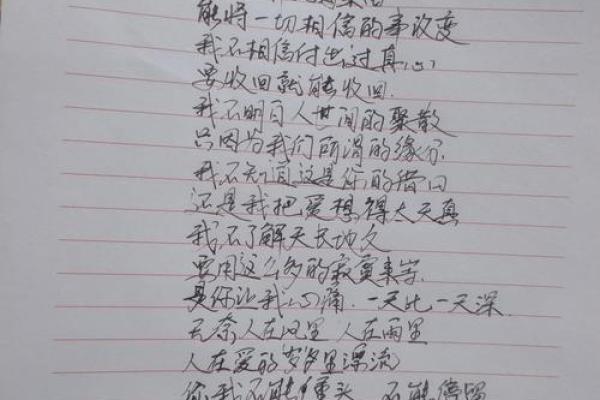 能将一切相信的事改变
我不相信付出过真心
要收回就能收回.
我不明白人世间的聚散
只因为我们所谓的缘分
我不知道这是你的借口
还是我把爱想得太天真
我不了解天长地久
要用这么多的寂寞来守.
是你让我心痛.一天比一天深.
无奈人在风里 人在雨里
人在爱的岁月里漂流
你我不能重头 不能停留